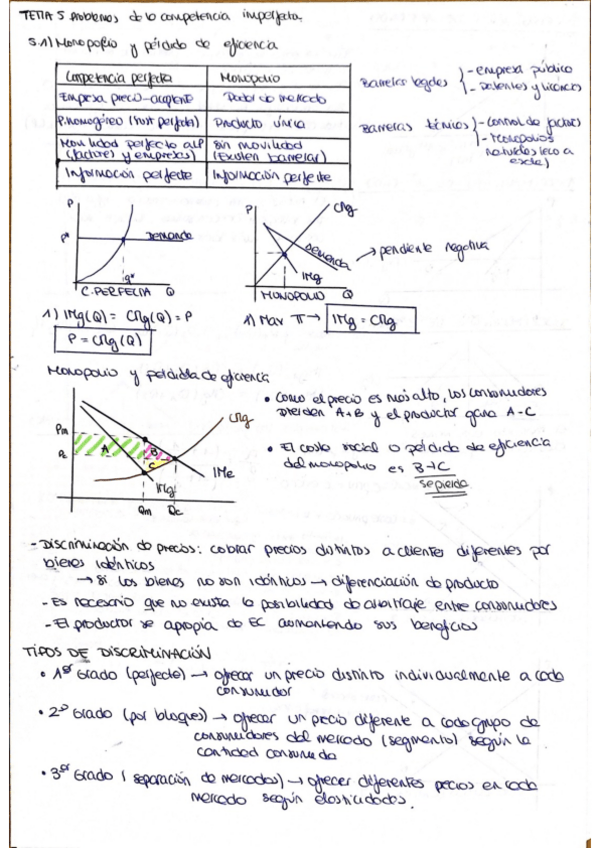 TEMA 5 Problemas de la competencia imperfecta.
5.1) Monopolio y pérdida de eficiencia
Competencia perfecta | Monopolio
Empresa precio-aceptante | Poder de mercado
P. homogéneo (sust perfecto) | Producto único
Movilidad perfecta a LP (factores y empresas) | Sin movilidad (Existen barreras)
Información perfecta | Información perfecta
Barreras legales { - empresa pública
- Patentes y licencias
Barreras técnicas { - control de factores
- Monopolios
naturales (eco a
escala)
P
P*
Demanda
q*
C. PERFECTA Q
P
CMg
Demanda
IMg
MONOPOLIO Q
→ pendiente negativa
1) IMg(Q) = CMg(Q) = P
P = CMg(Q)
1) Max π → IMg = CMg
Monopolio y pérdida de eficiencia
CMg
Pm
Pc
A
B
C
IMe
IMg
Qm Qc
• Como el precio es más alto, los consumidores
pierden A+B y el productor gana A-C
• El coste social o pérdida de eficiencia
del monopolio es B+C
se pierde
- Discriminación de precios: cobrar precios distintos a clientes diferentes por
bienes idénticos
→ Si los bienes no son idénticos → diferenciación de producto
- Es necesario que no exista la posibilidad de arbitraje entre consumidores
- El productor se apropia do EC aumentando sus beneficios
TIPOS DE DISCRIMINACIÓN
• 1er Grado (perfecta) → ofrecer un precio distinto individualmente a cada
consumidor
• 2º Grado (por bloques) → ofrecer un precio diferente a cada grupo de
consumidores del mercado (segmento) según la
cantidad consumida
• 3er Grado (separación de mercados) → ofrecer diferentes precios en cada
mercado según elasticidades.